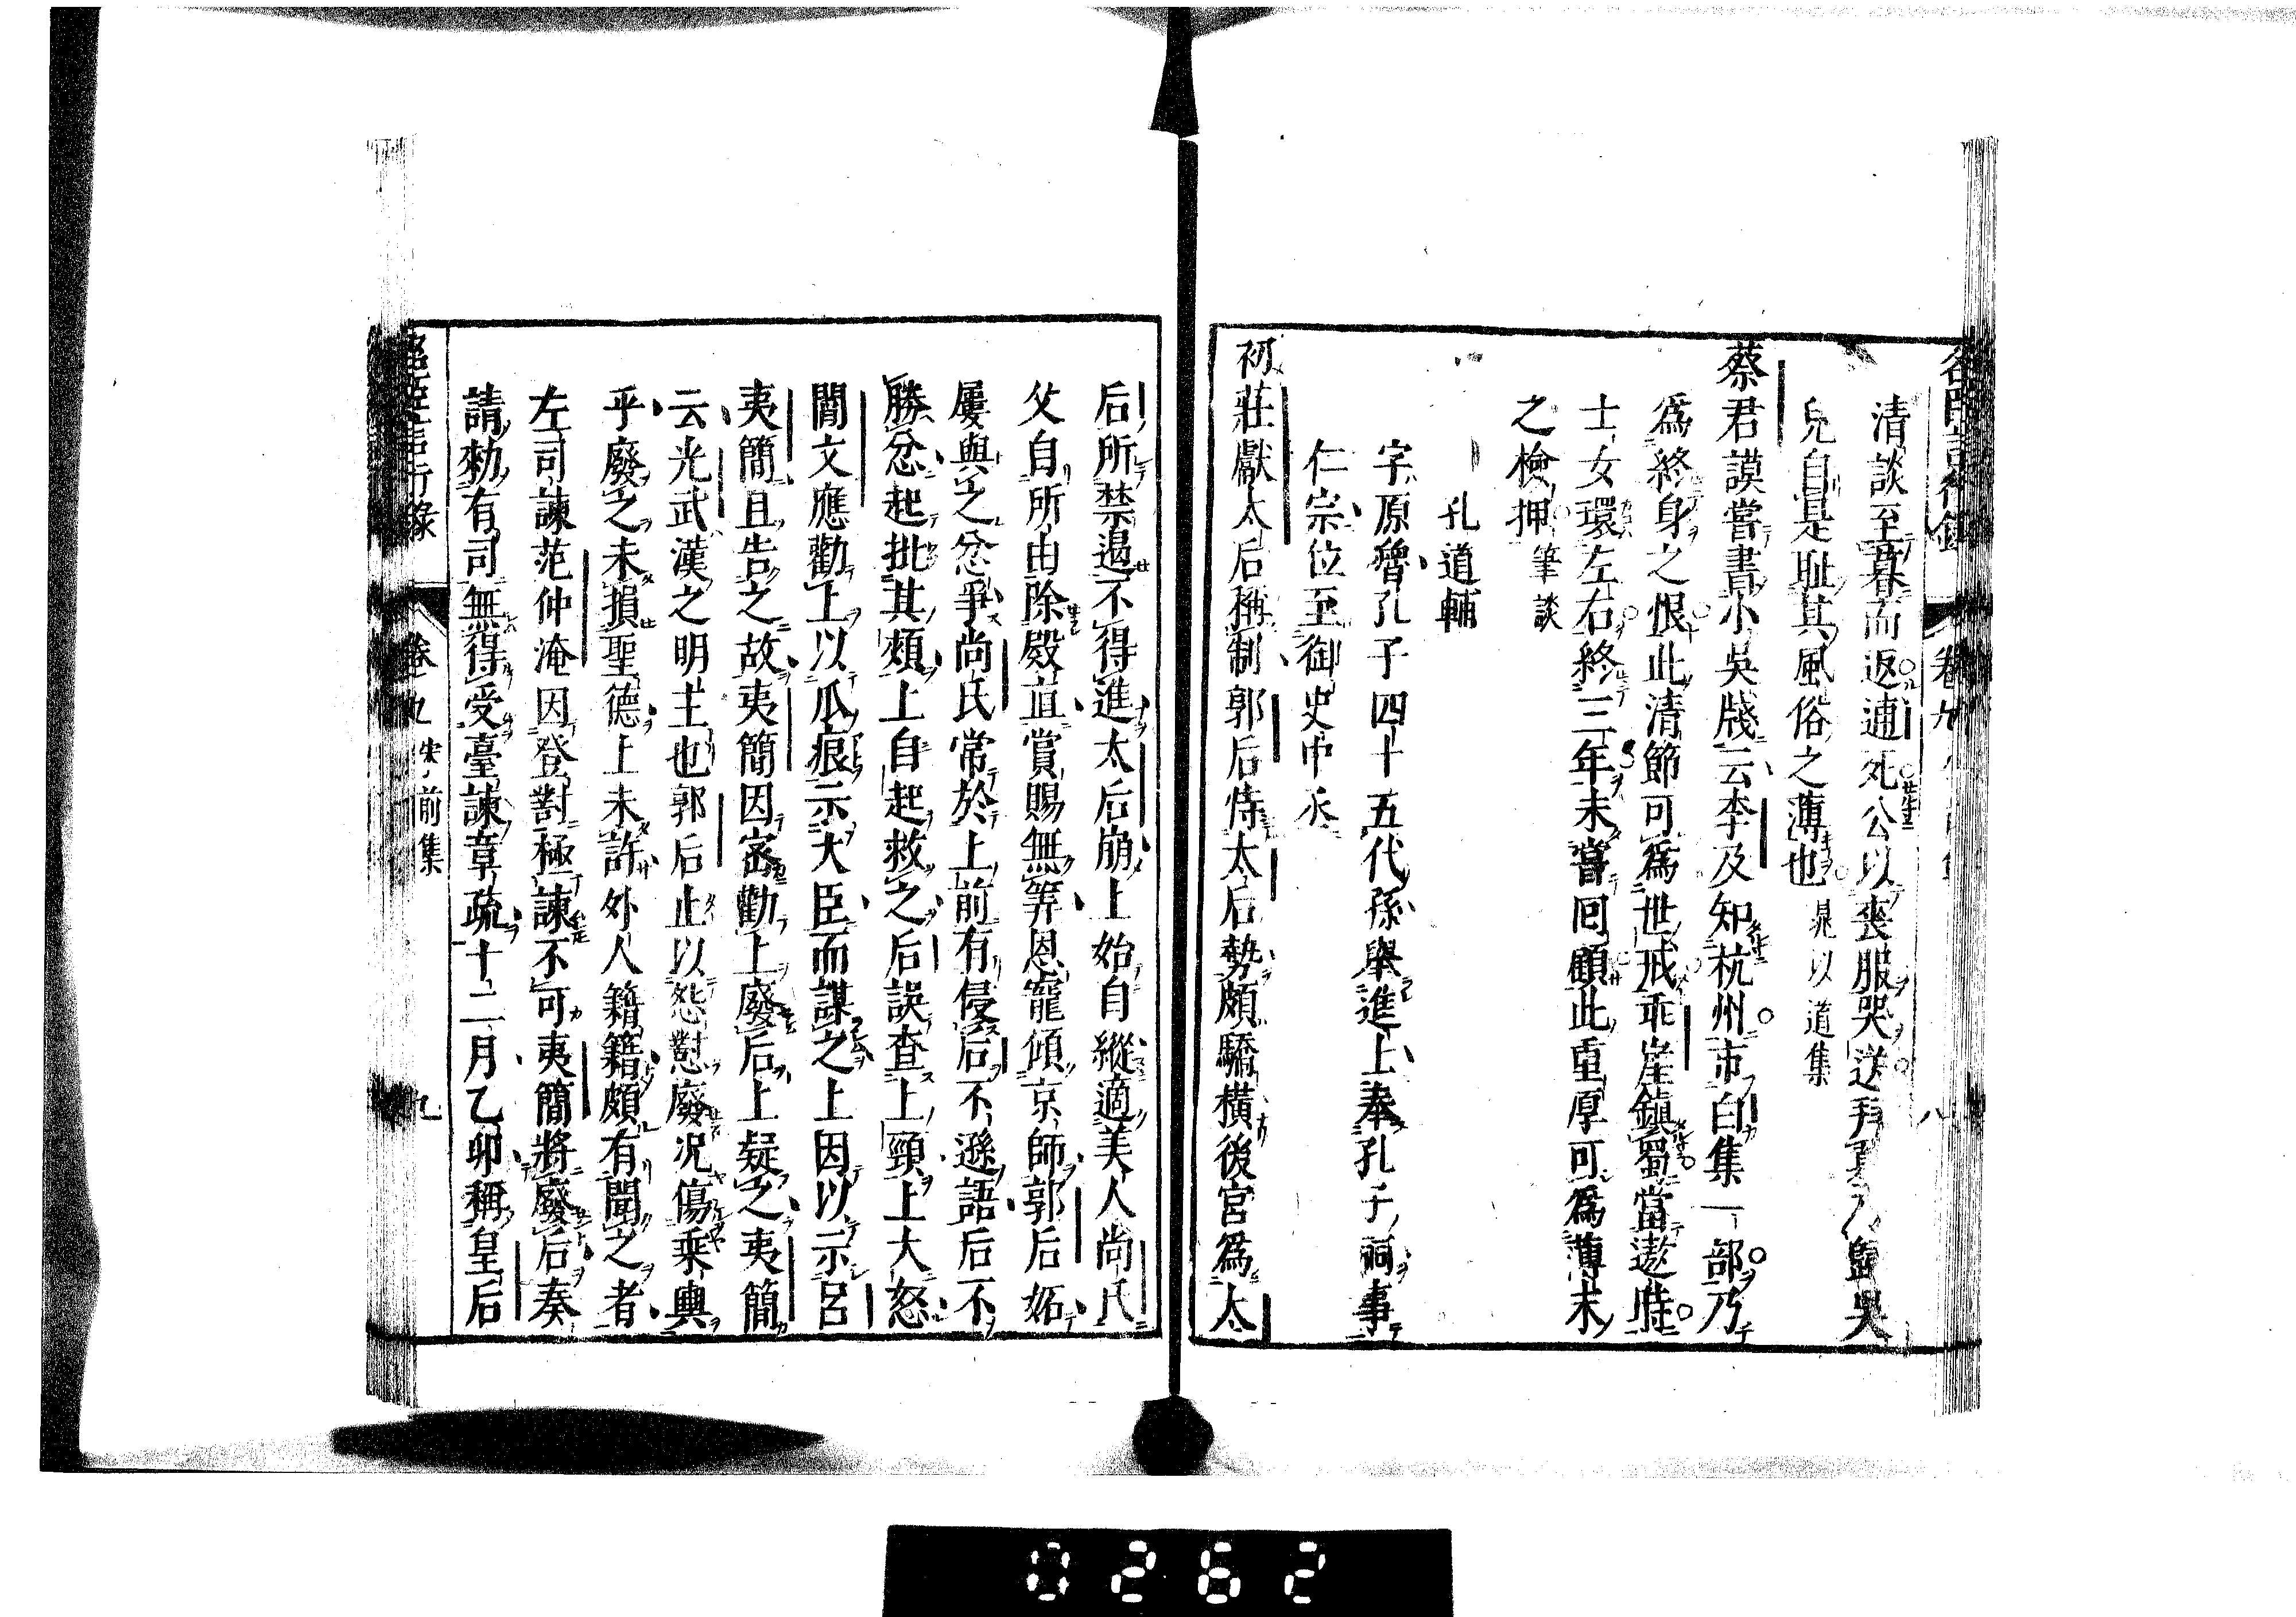 清談至暮而返逋死公以喪服哭送拜墓乃歸吳
兒自是耻其風俗之薄也 晁以道集
蔡君謨嘗書小吳牋云李及知杭州市白集一部乃
爲終身之恨此清節可爲世戒乖崖鎮蜀當遨遊時
士女環左右終三年未嘗回顧此重厚可爲薄末
之檢押 筆談
孔道輔
字原魯孔子四十五代孫舉進士奉孔子祠事
仁宗位至御史中丞
初莊獻太后稱制郭后恃太后勢頗驕橫後宮爲太
后所禁遏不得進太后崩上始自縱適美人尚氏
父自所由除殿直賞賜無筭恩寵傾京師郭后妬
屢與之忿爭尚氏常於上前有侵后不遜語后不
勝忿起批其頰上自起救之后誤查上頸上大怒
閻文應勸上以爪痕示大臣而謀之上因以示呂
夷簡且告之故夷簡因密勸上廢后上疑之夷簡
云光武漢之明主也郭后止以怨懟廢况傷乘輿
乎廢之未損聖德上未許外人籍籍頗有聞之者
左司諫范仲淹因登對極諫不可夷簡將廢后奏
請勑有司無得受臺諫章疏十二月乙卯稱皇后
言行錄 卷九 宋前集 九